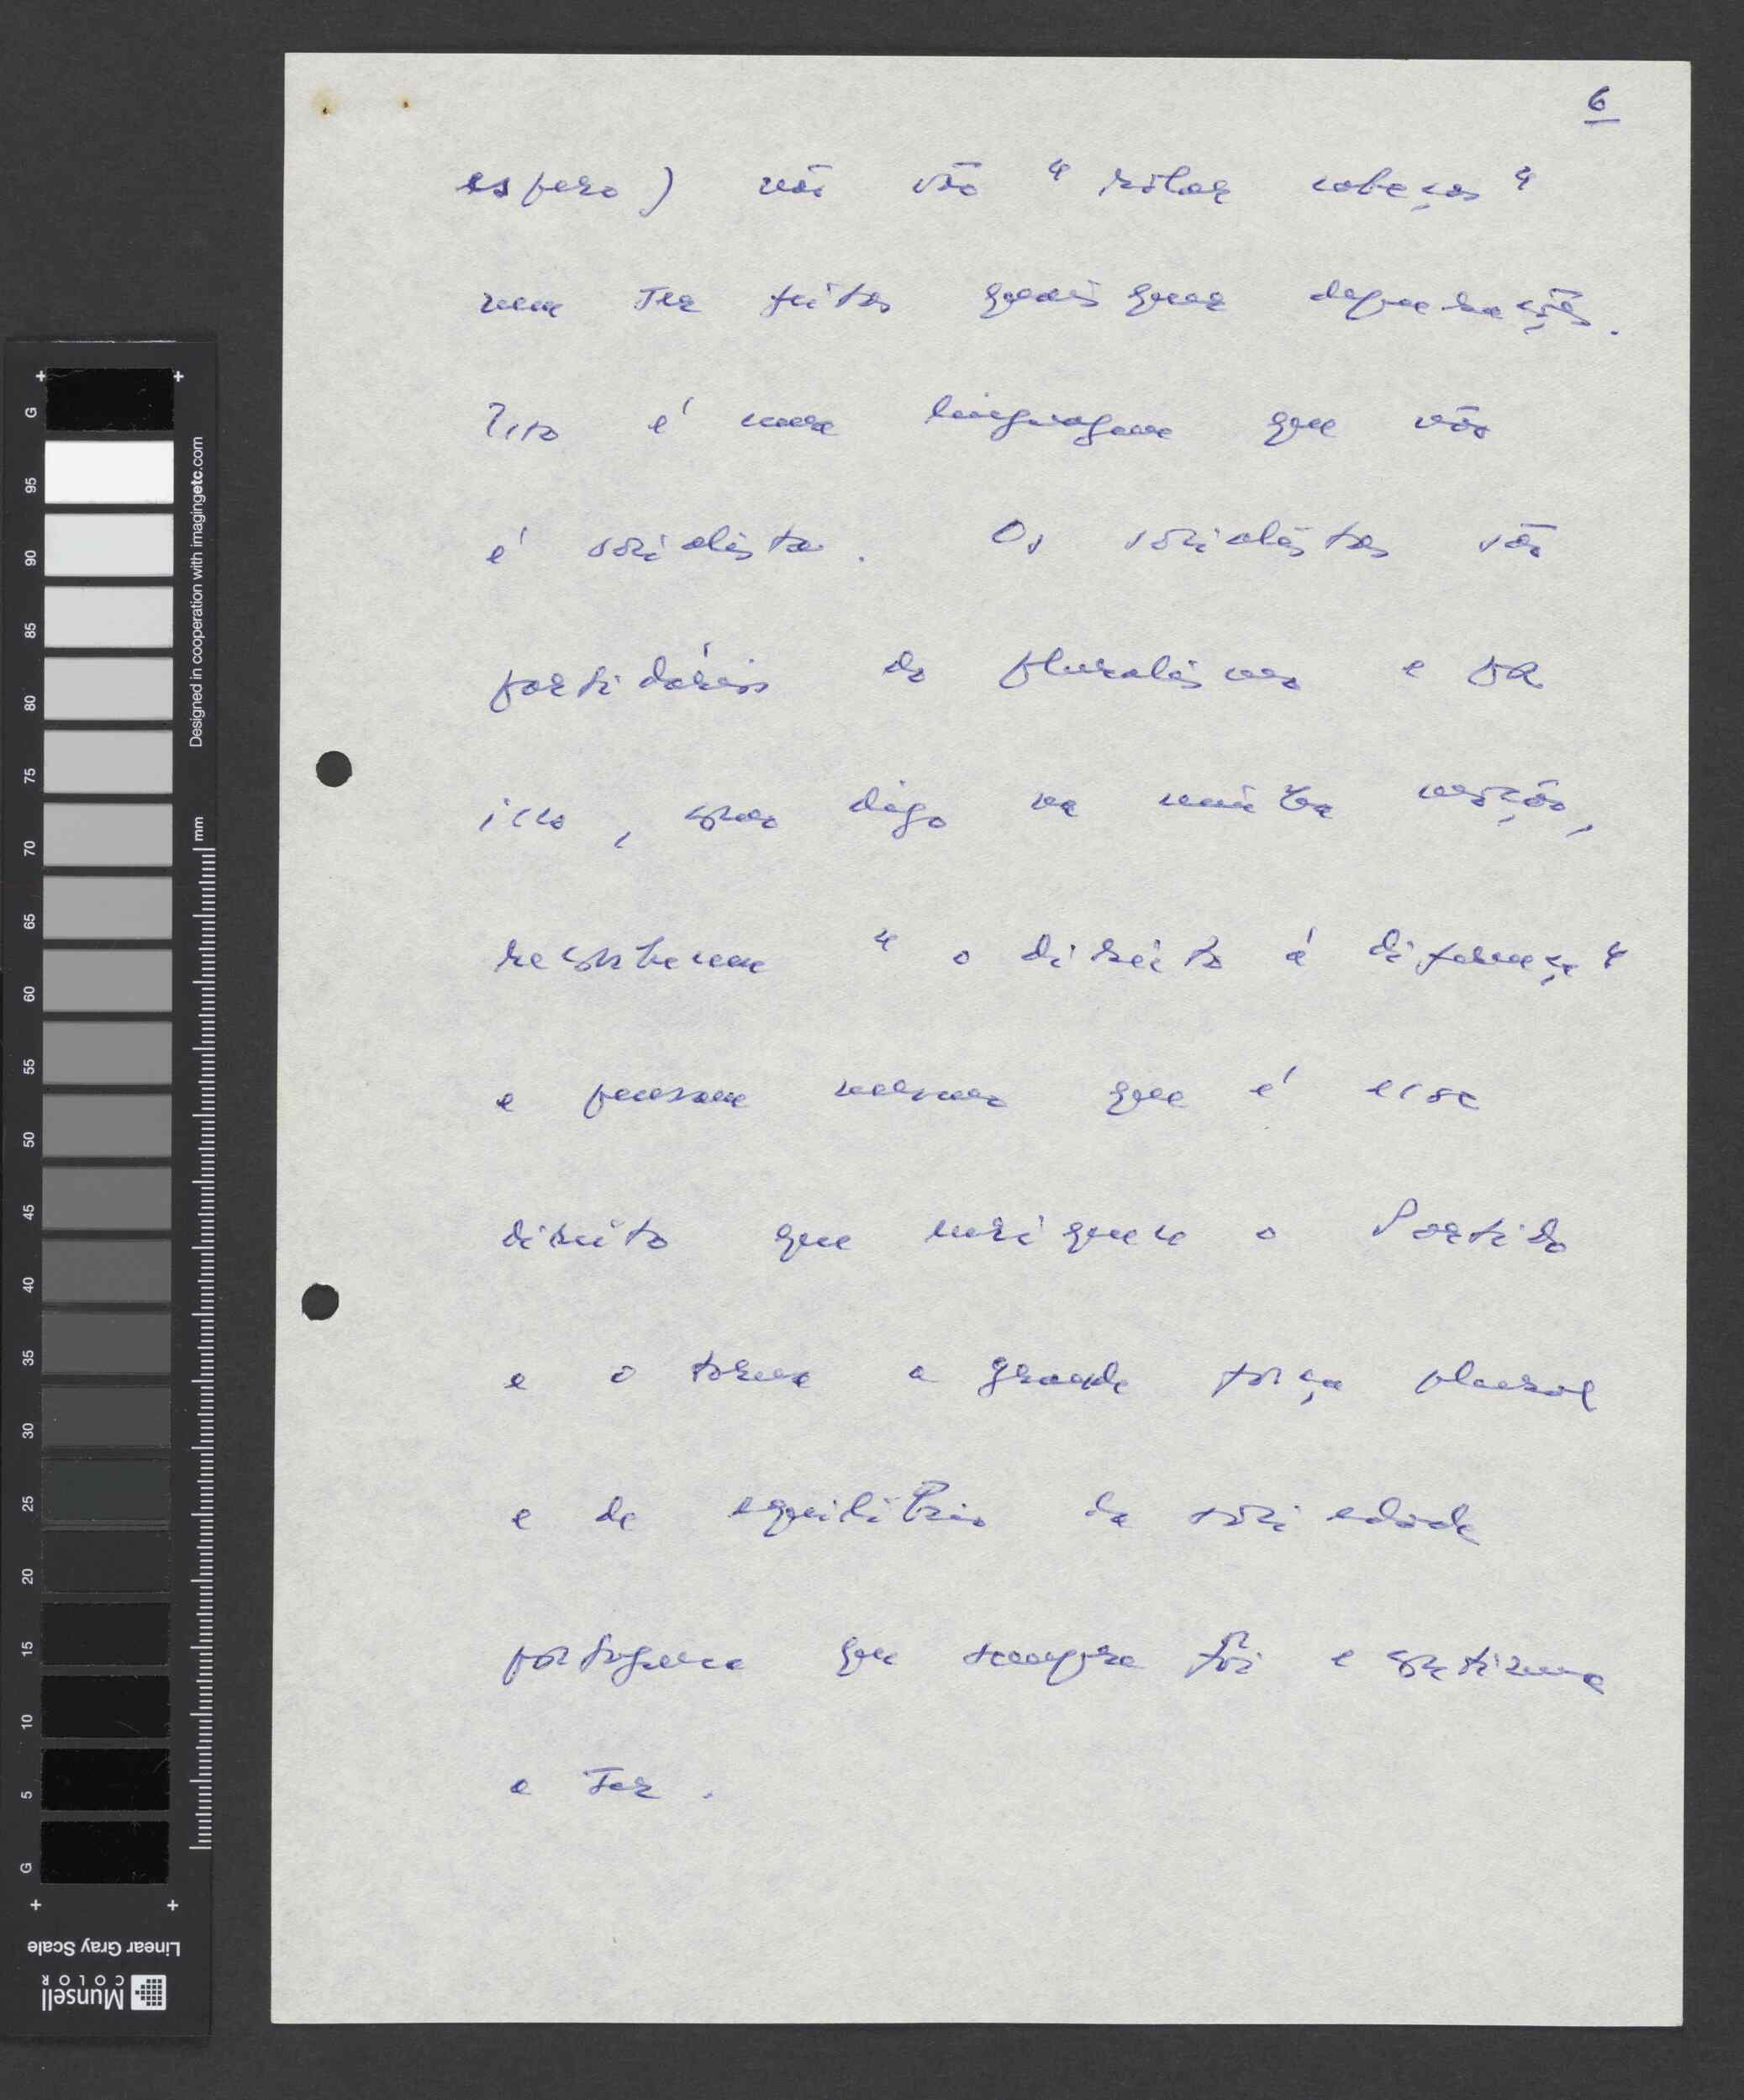 6
espero) não vão "rolar cabeças"
nem ser feitas quaisquer depurações.
Isso é uma linguagem que não
é socialista. Os socialistas são
partidários do pluralismo e por
isso, como digo na minha moção,
reconhecem "o direito à diferença"
e pensam mesmo que é esse
direito que enriquece o Partido
e o torna a grande força plural
e de equilíbrio da sociedade
portuguesa que sempre foi e continua
a ser.
+ +
G
95
90
85
80
75
70
65
60
55
50
45
40
35
30
25
20
15
10
5
G
+ +
Designed in cooperation with imagingetc.com
mm
Linear Gray Scale
Munsell
COLOR